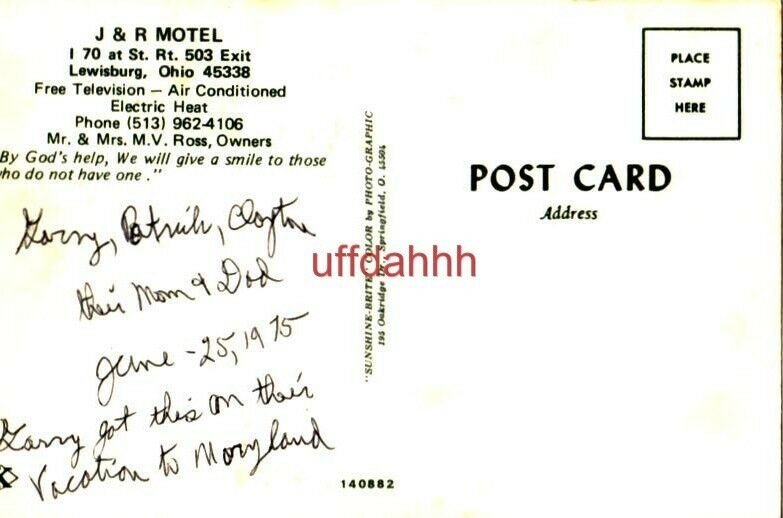 J & R MOTEL
I 70 at St. Rt. 503 Exit
Lewisburg, Ohio 45338
Free Television — Air Conditioned
Electric Heat
Phone (513) 962-4106
Mr. & Mrs. M.V. Ross, Owners
By God's help, We will give a smile to those
ho do not have one."
Larry, Patrick, Clayton
their Mom & Dad
June - 25, 1975
Larry got this on their
Vacation to Maryland
"SUNSHINE-BRITE" COLOR by PHOTO-GRAPHIC
195 Oakridge Dr., Springfield, O. 45504
140882
PLACE
STAMP
HERE
POST CARD
Address
uffdahhh